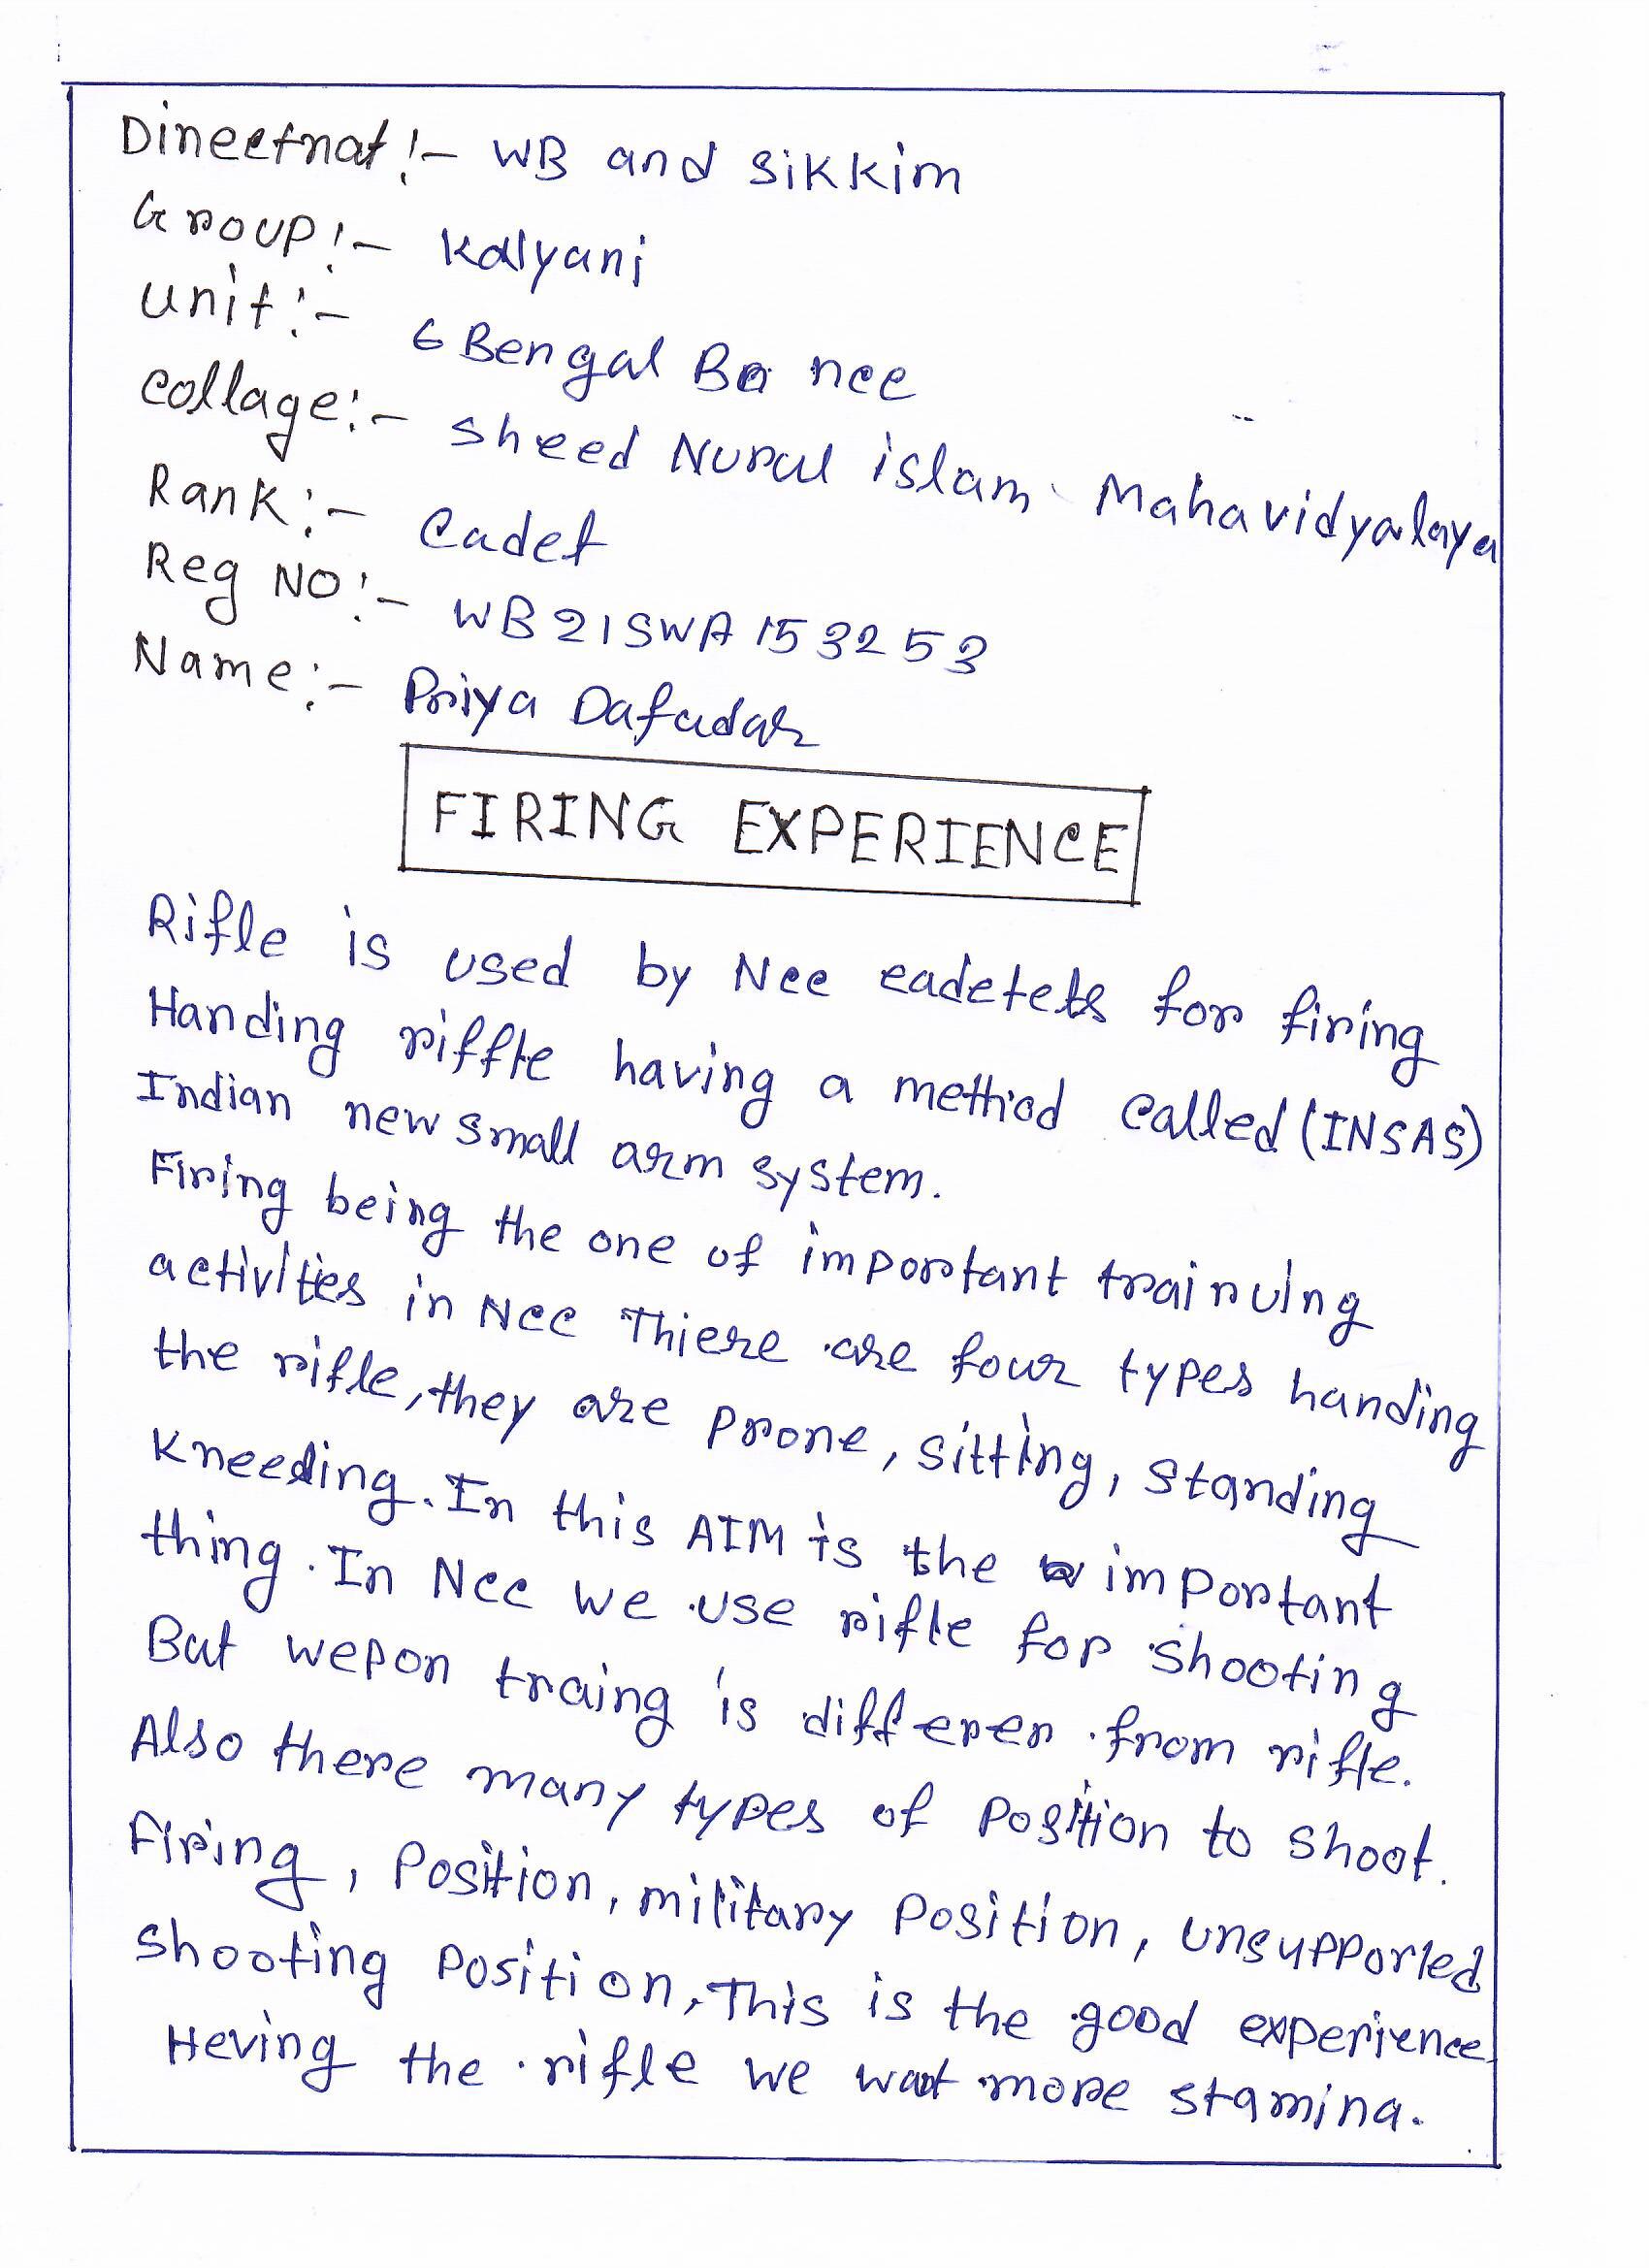 Dineetnat :- WB and Sikkim
Group :- Kalyani
Unit :- 6 Bengal Bn ncc
Collage :- Sheed Nurul islam Mahavidyalaya
Rank :- Cadet
Reg NO :- WB21SWA153253
Name :- Priya Dafadar
FIRING EXPERIENCE
Rifle is used by Ncc cadetets for firing
Handing riffle having a method called (INSAS)
Indian new small arm system.
Firing being the one of important trainuing
activities in Ncc Thiere are four types handing
the rifle, they are prone, sitting, standing
kneeding. In this AIM is the important
thing. In Ncc we use rifle for shooting
But wepon traing is differen from rifle.
Also there many types of position to shoot.
Firing, Position, military Position, unsupported
shooting position, This is the good experience
Heving the rifle we wat more stamina.